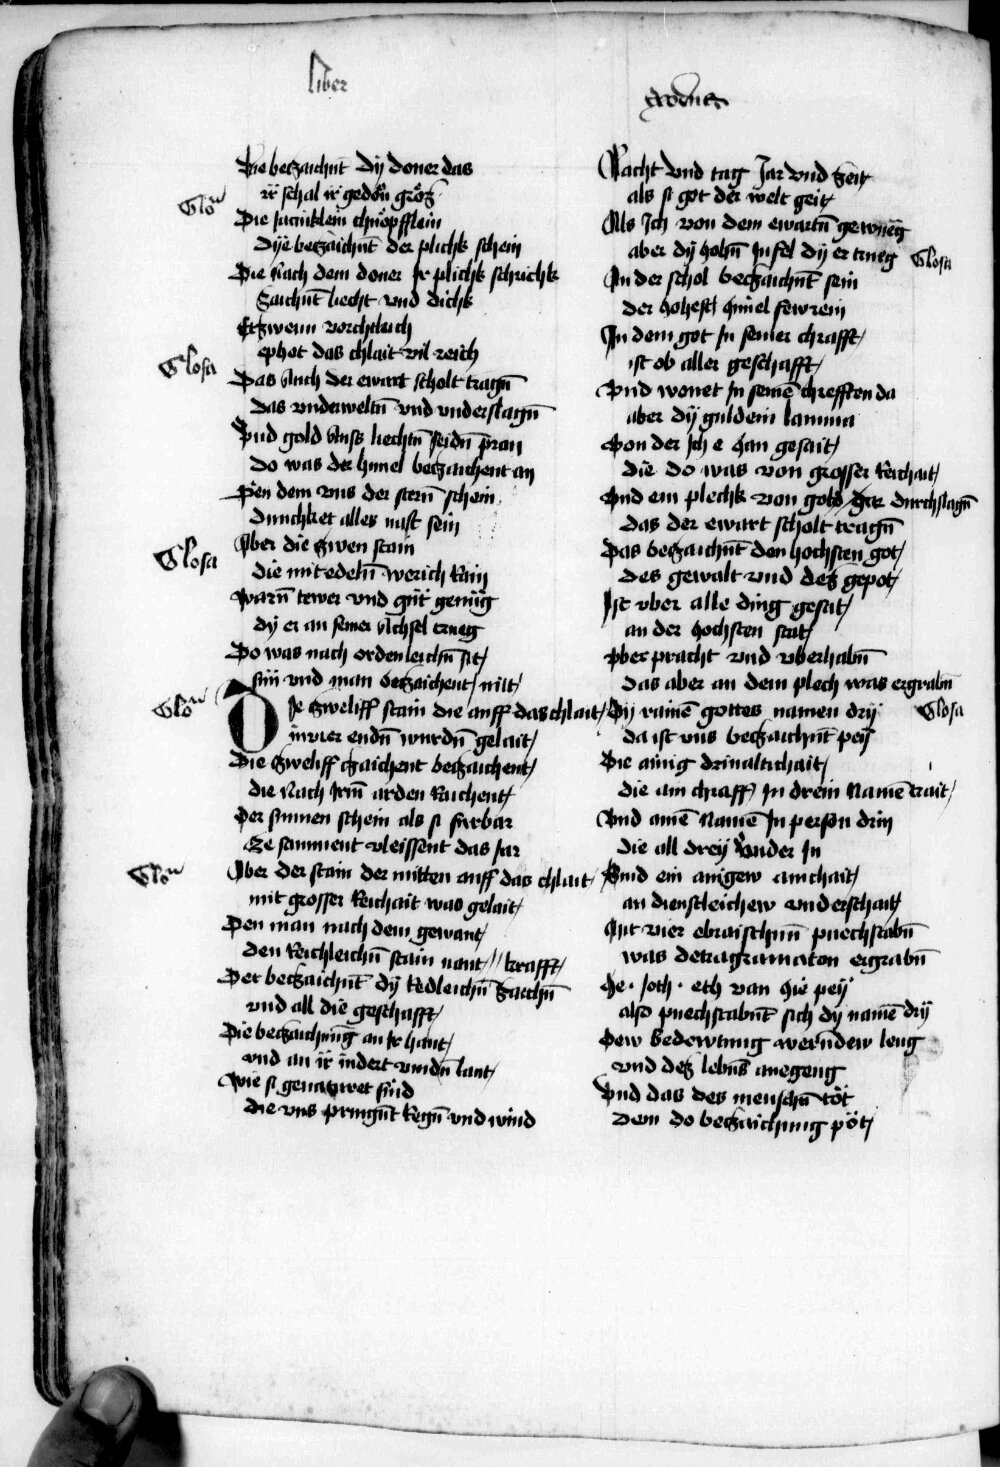 liber
Exodus
Die beczaichnt dy doner das
ir schal ir gedon gröz
Glo
Die chnöpfflein
dye beczaichnt der plichk schein
Die nach dem doner ir plichk schrichk
czaichnt liecht vnd dichk
Etzwenn vorchtleich
ephot das chlait vil reich
Glosa
Das auch der ewart scholt tragn
das vnderweltn vnd vnderslagn
Vnd gold auss liechtn seidn pran
do was der himel beczaichent an
Den dem vns der stern schein
dunchket alles nust sein
Aber die zwen stain
Glosa
die mit edeln werich rain
warn tewer vnd gut genüg
dy er an seiner achsel trueg
Do was nach ordenleichn sit
sun vnd man beczaichent mit
Glo
Die zweliff stain die auff das chlait
in vier endn wurdn gelait
Die zweliff czaichent beczaichent
die nach irm arden raichent
Der sunnen schein als si furbar
ze samment vleissent das jar
Glo
Aber der stain der mitten auff das chlait
mit grosser reichait was gelait
Den man nach dem gewant
den reichleichn stain nant
Der beczaichnt dy redleichn sachn krafft
vnd all die geschafft
Die beczaichnung an ir hant
vnd an ir indert vindn lant
wie si genaturet sind
die vns pringnt regn vnd wind
Nacht vnd tag Jar vnd zeit
als si got der welt geit
Als Ich von dem ewartn gewueg
aber dy hohn Infel dy er trueg
Glosa
An der schol beczaichnt sein
der hohest himel fewrein
In dem got in seiner chrafft
ist ob aller geschafft
Vnd wonet In seinē chrefften da
aber dy guldein lamina
Von der Ich e han gesait
die do was von grosser reichait
Vnd ein plechk von gold gar durchslagn
das der ewart scholt tragn
Das beczaichnt den hochsten got
des gewalt vnd dez gepot
Ist vber alle ding gesat
an der hochsten stat
vber pracht vnd vberhabn
das aber an dem plech was ergrabn
Dy rainē gottes namen dry
Glosa
da ist vns beczaichnt pey
Die ainig drinaltichait
die ain chrafft In drein Namē trait
Vnd ainē Namē In person drin
die all drey vnder In
Sind ein ainigew ainchait
an dienstleichew vnderschait
Mit vier ebraischnn puechstabn
was detragramaton ergrabn
He . Joth . eth van hie pey
also puechstabnt sich dy namē dry
Dew bedewtung werndew leng
vnd dez lebns anegeng
Vnd das des menschn töt
dem do beczaichnung pöt